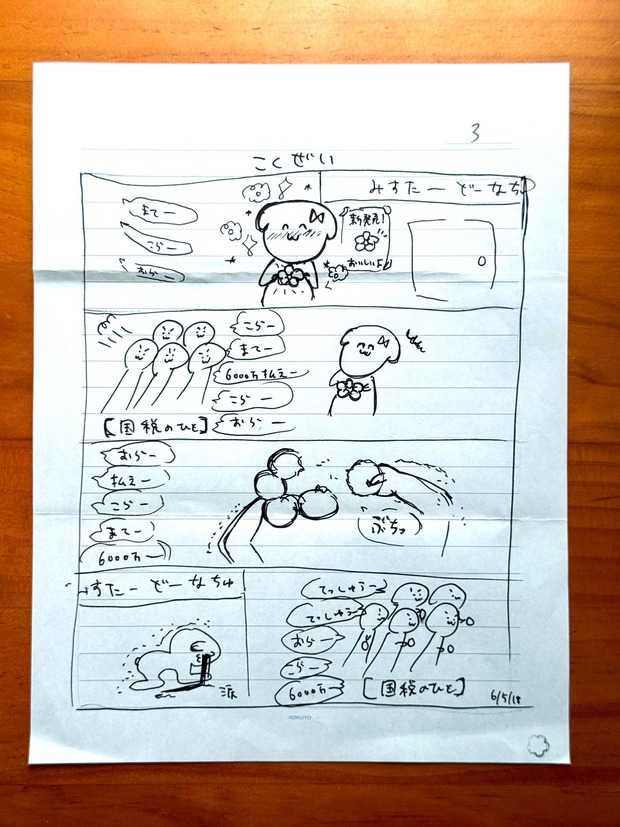 3
こくぜい
みすたーどーなちゅ
新発売!
おいしいよ
まてー
こらー
おらー
こらー
まてー
6000万払えー
こらー
おらー
【国税のひと】
おらー
払えー
こらー
まてー
6000万ー
ぶちっ
すたーどーなちゅ
涙
てっしゅうー
てっしゅうー
おらー
こらー
6000万ー
【国税のひと】
6/5/18
KOKUYO